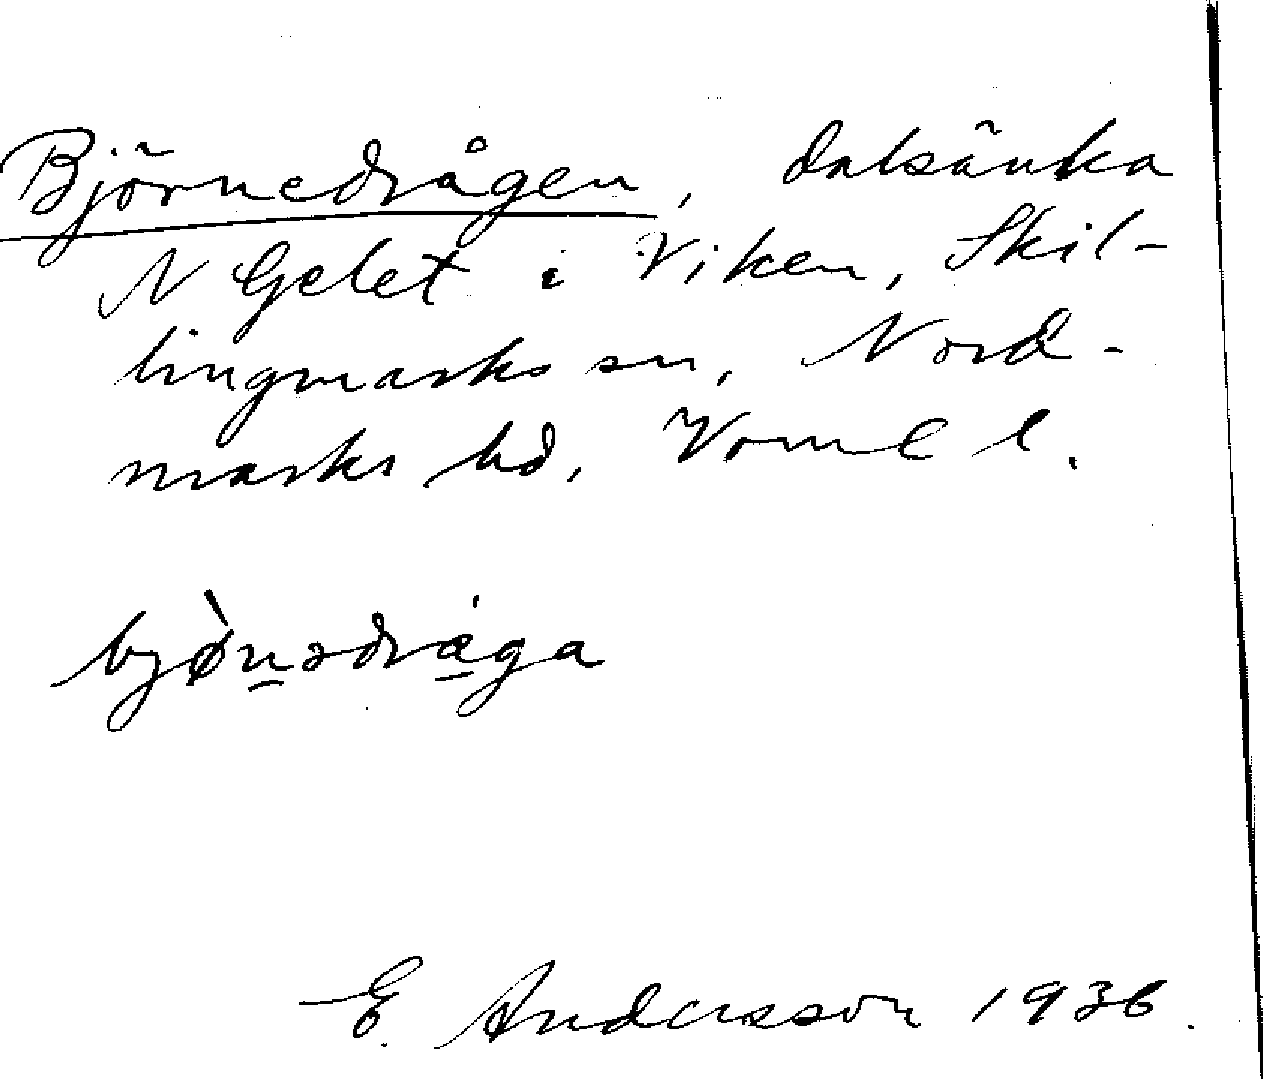 Björnedrågen, dalsänka
N Gelet i Viken, Skil-
lingmarks sn, Nord-
marks hd, Värml l.
bjø̀nədråga
E. Andersson 1936.